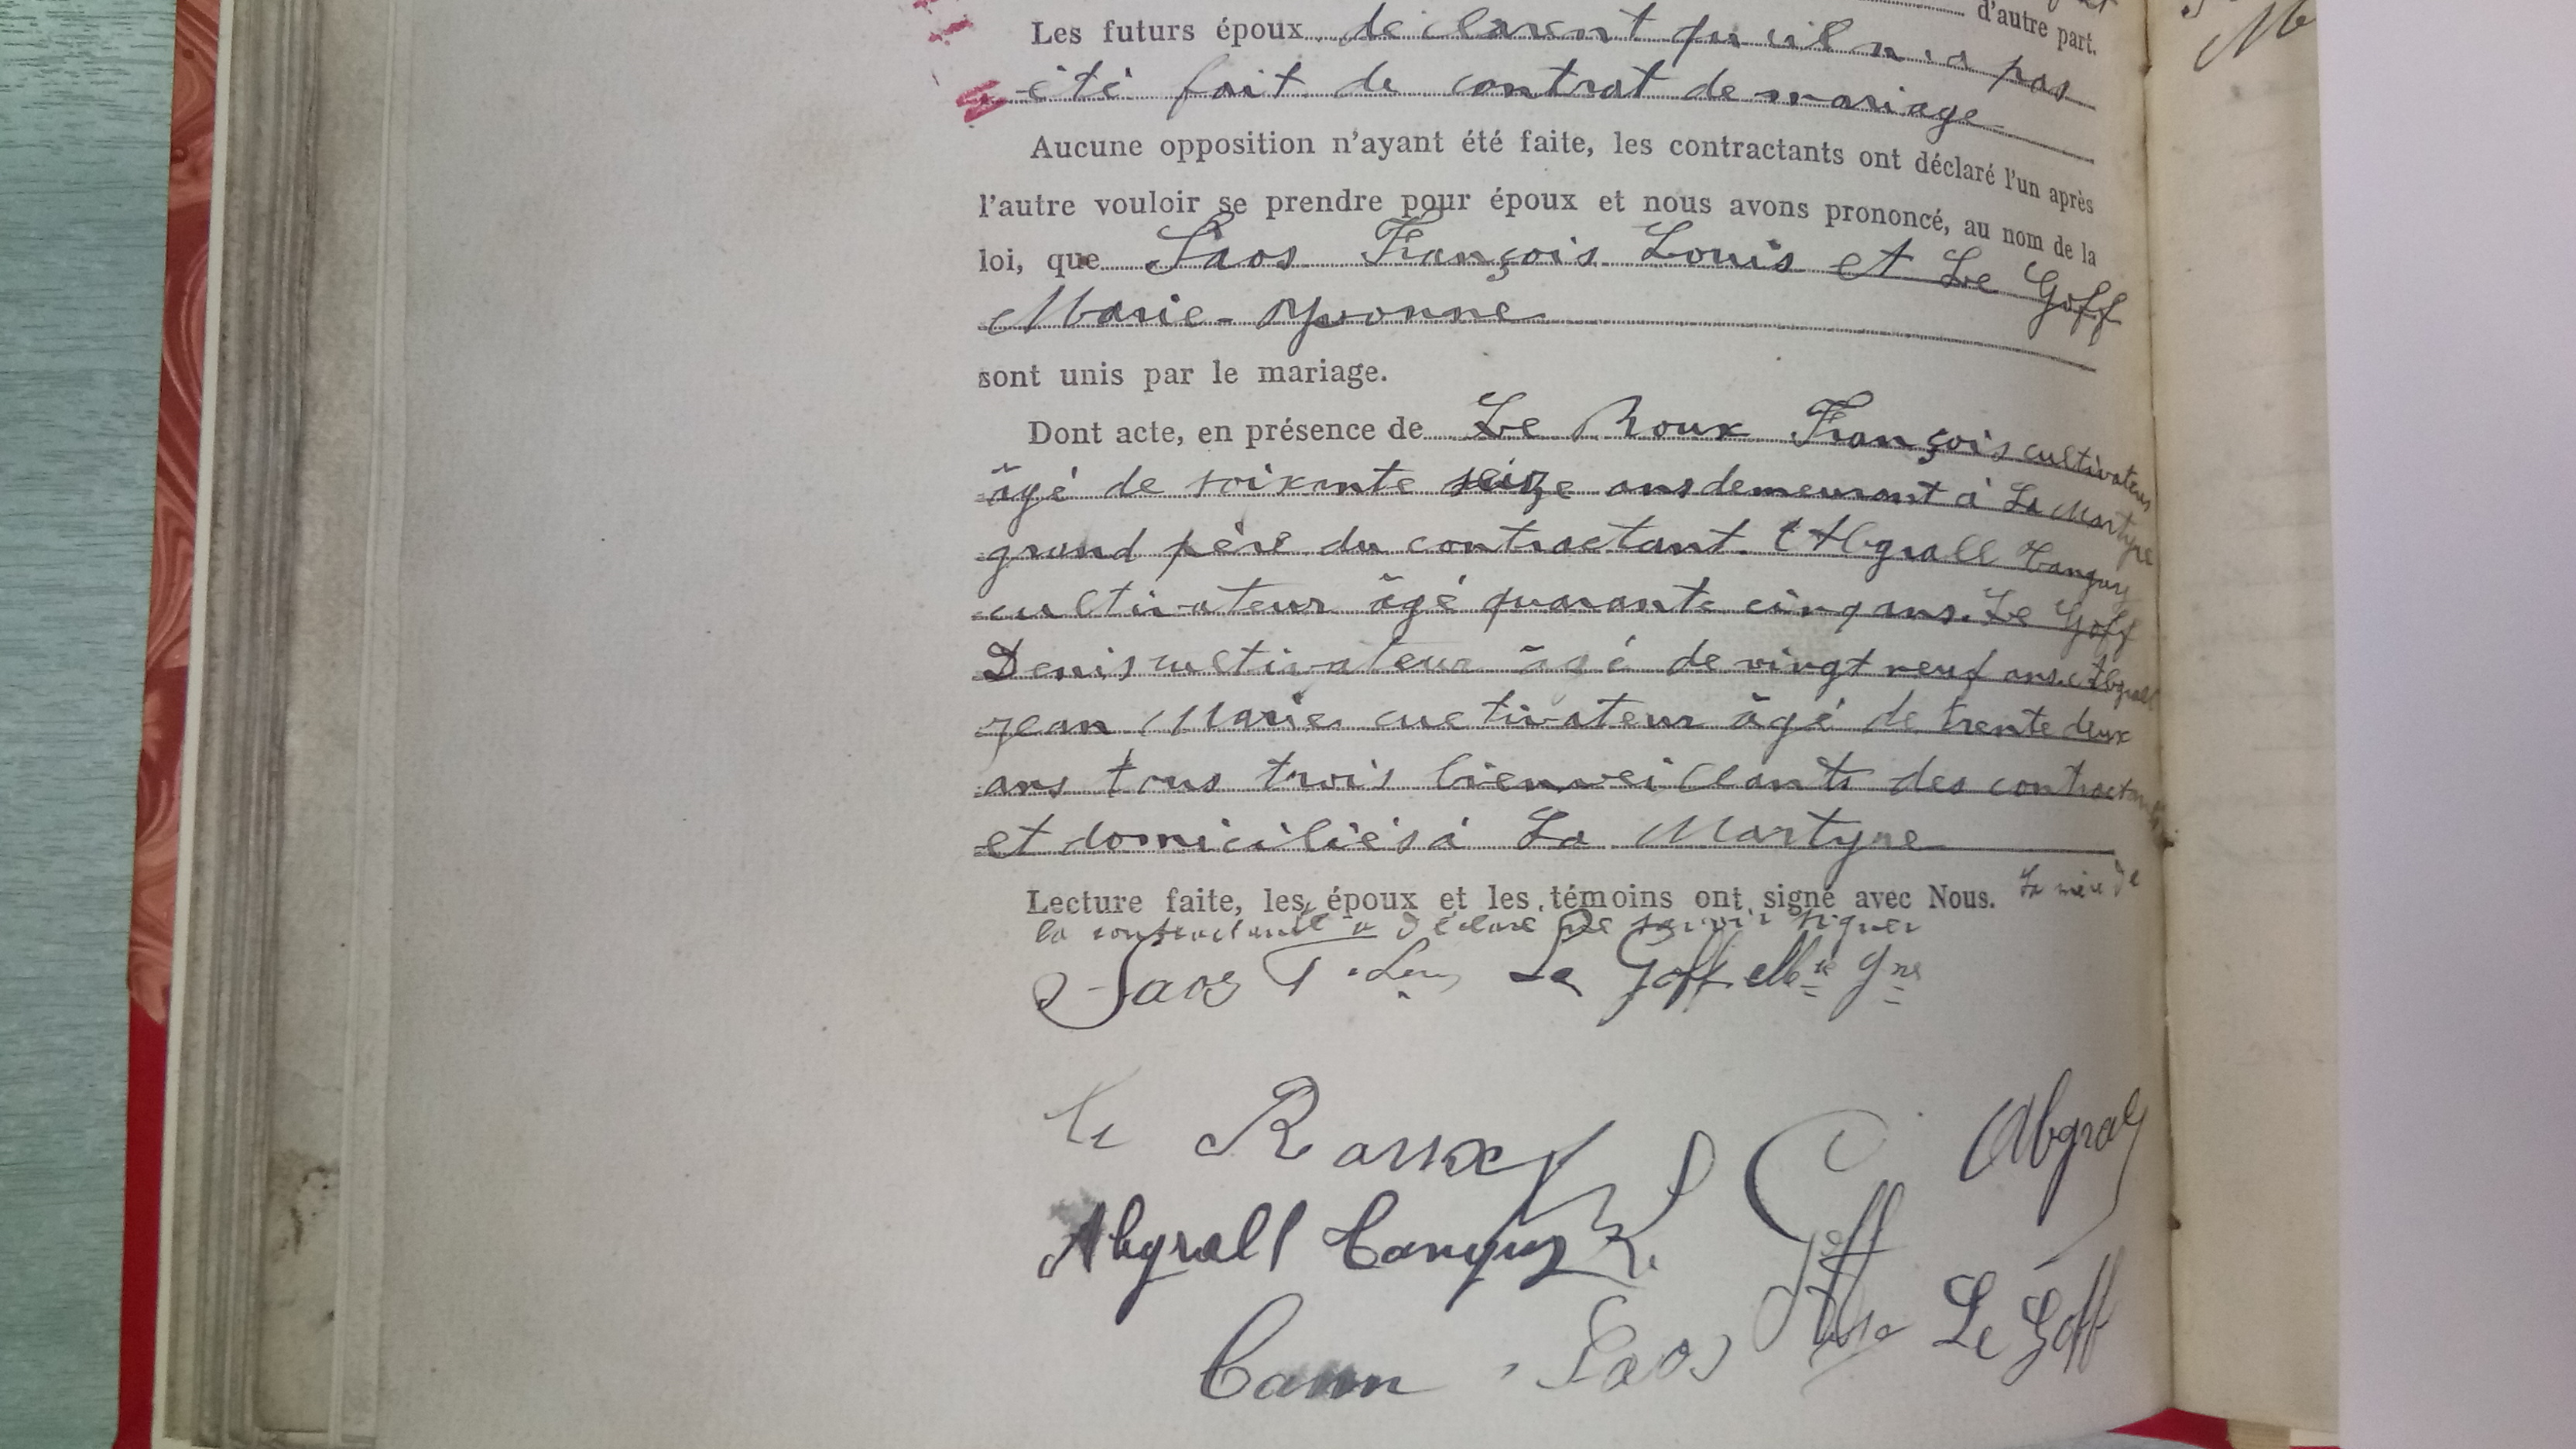 d'autre part.
Les futurs époux déclarent qu'il n'a pas
été fait de contrat de mariage
Aucune opposition n'ayant été faite, les contractants ont déclaré l'un après
l'autre vouloir se prendre pour époux et nous avons prononcé, au nom de la
loi, que Saos François Louis et Le Goff
Marie-Yvonne
sont unis par le mariage.
Dont acte, en présence de Le Roux François cultivateur
âgé de soixante seize ans demeurant à La Martyre
grand père du contractant. Abgrall Tanguy
cultivateur âgé quarante cinq ans. Le Goff
Denis cultivateur âgé de vingt neuf ans. Abgrall
Jean Marie cultivateur âgé de trente deux
ans tous trois bienveillants des contractants
et domiciliés à La Martyre
Lecture faite, les époux et les témoins ont signé avec Nous. La mère de
la contractante a déclaré ne savoir signer
Saos F. Louis Le Goff Mie Yne
Le Roux Abgrall
Abgrall Tanguy Goff
Cann Saos Le Goff